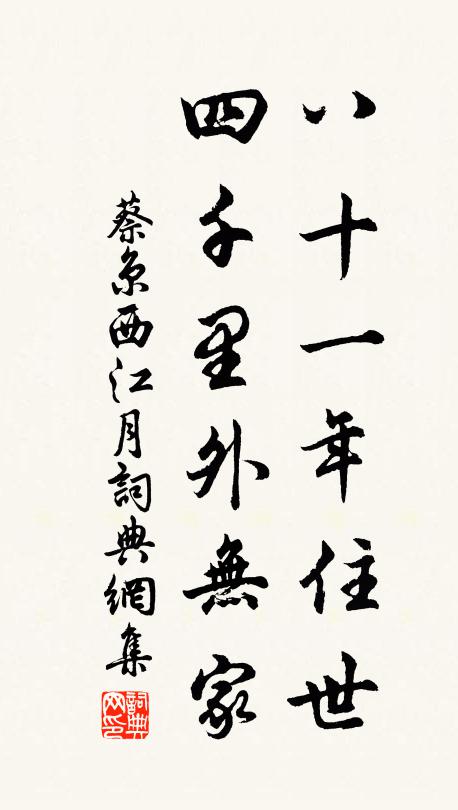 八十一年住世
四千里外無家
蔡京西江月詞典網集
詞典網印